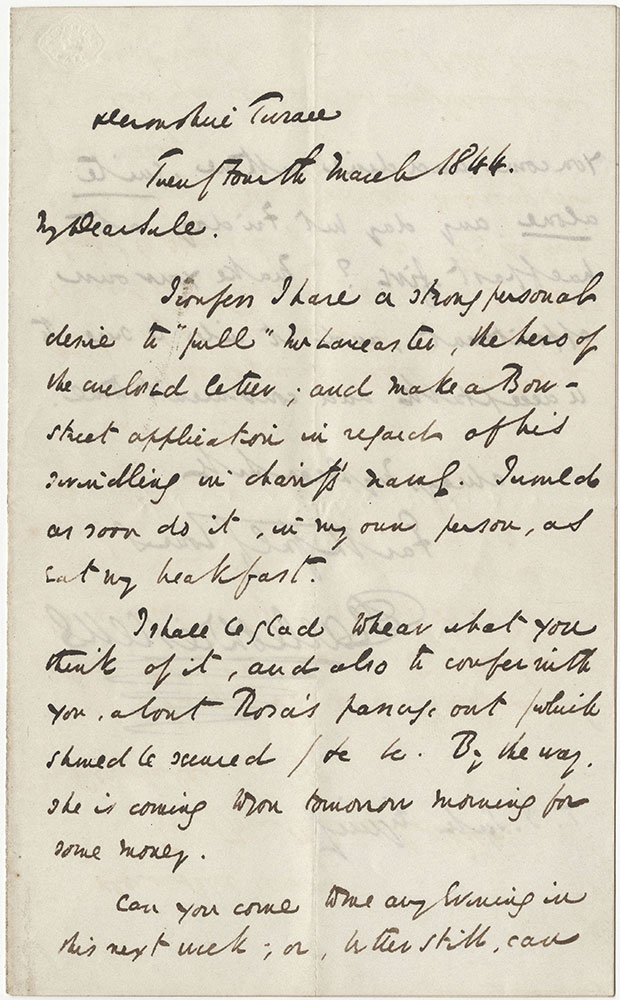 Devonshire Terrace
Twenty Fourth March 1844.
My Dear Sale.
I confess I have a strong personal
desire to "pull" Mr Lancaster, the hero of
the enclosed letter; and make a Bow-
street application in regard of his
swindling in charity's name. I would
as soon do it, in my own person, as
eat my breakfast.
I shall be glad to hear what you
think of it, and also to confer with
you, about Rosa's passage out (which
should be secured) &c &c. By the way,
she is coming to me tomorrow morning for
some money.
Can you come to me any Evening in
this next week; or, better still, can